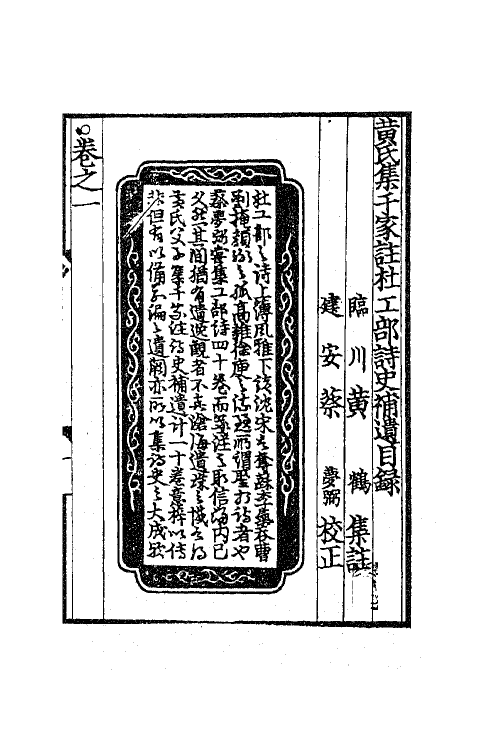 黄氏集千家註杜工部詩史補遺目録
臨川黄鶴集註
建安蔡夢弼校正
杜工部之詩上薄風雅下該沈宋言奪蘇李氣吞曹
劉掩顔謝之孤高雜徐庾之流麗所謂聖於詩者也
蔡夢弼嘗集工部詩四十卷而箋注之取信海内已
久然其間猶有遺逸觀者不無滄海遺珠之憾今得
黄氏父子集千家注詩史補遺計一十卷意梓以傳
非但有以備前編之遺闕亦所以集詩史之大成歟
卷之一